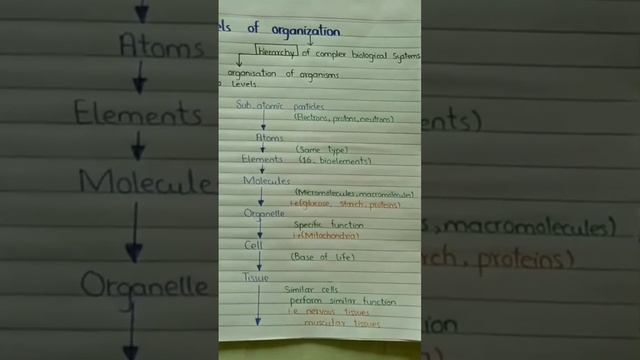 els of organization
[Hierarchy] of complex biological systems
organisation of organisms
levels
Sub atomic particles
(Electrons, protons, neutrons)
Atoms
(Same type)
Elements (16, bioelements)
Molecules
(Micromolecules, macromolecules)
i.e (glucose, starch, proteins)
Organelle
Specific function
i.e (Mitochondria)
Cell
(Base of life)
Tissue
Similar cells
perform similar function
i.e nervous tissues
muscular tissues
Atoms
Elements
Molecule
Organelle
ents)
s, macromolecules)
rch, proteins)
ion
ria)